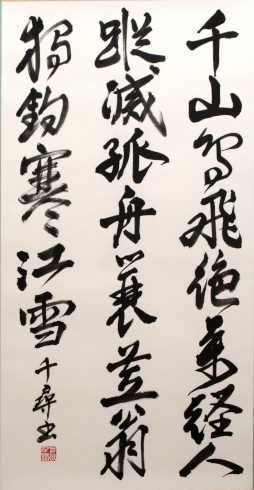 千山鳥飛絶萬径人
蹤滅孤舟蓑笠翁
獨釣寒江雪
千尋書